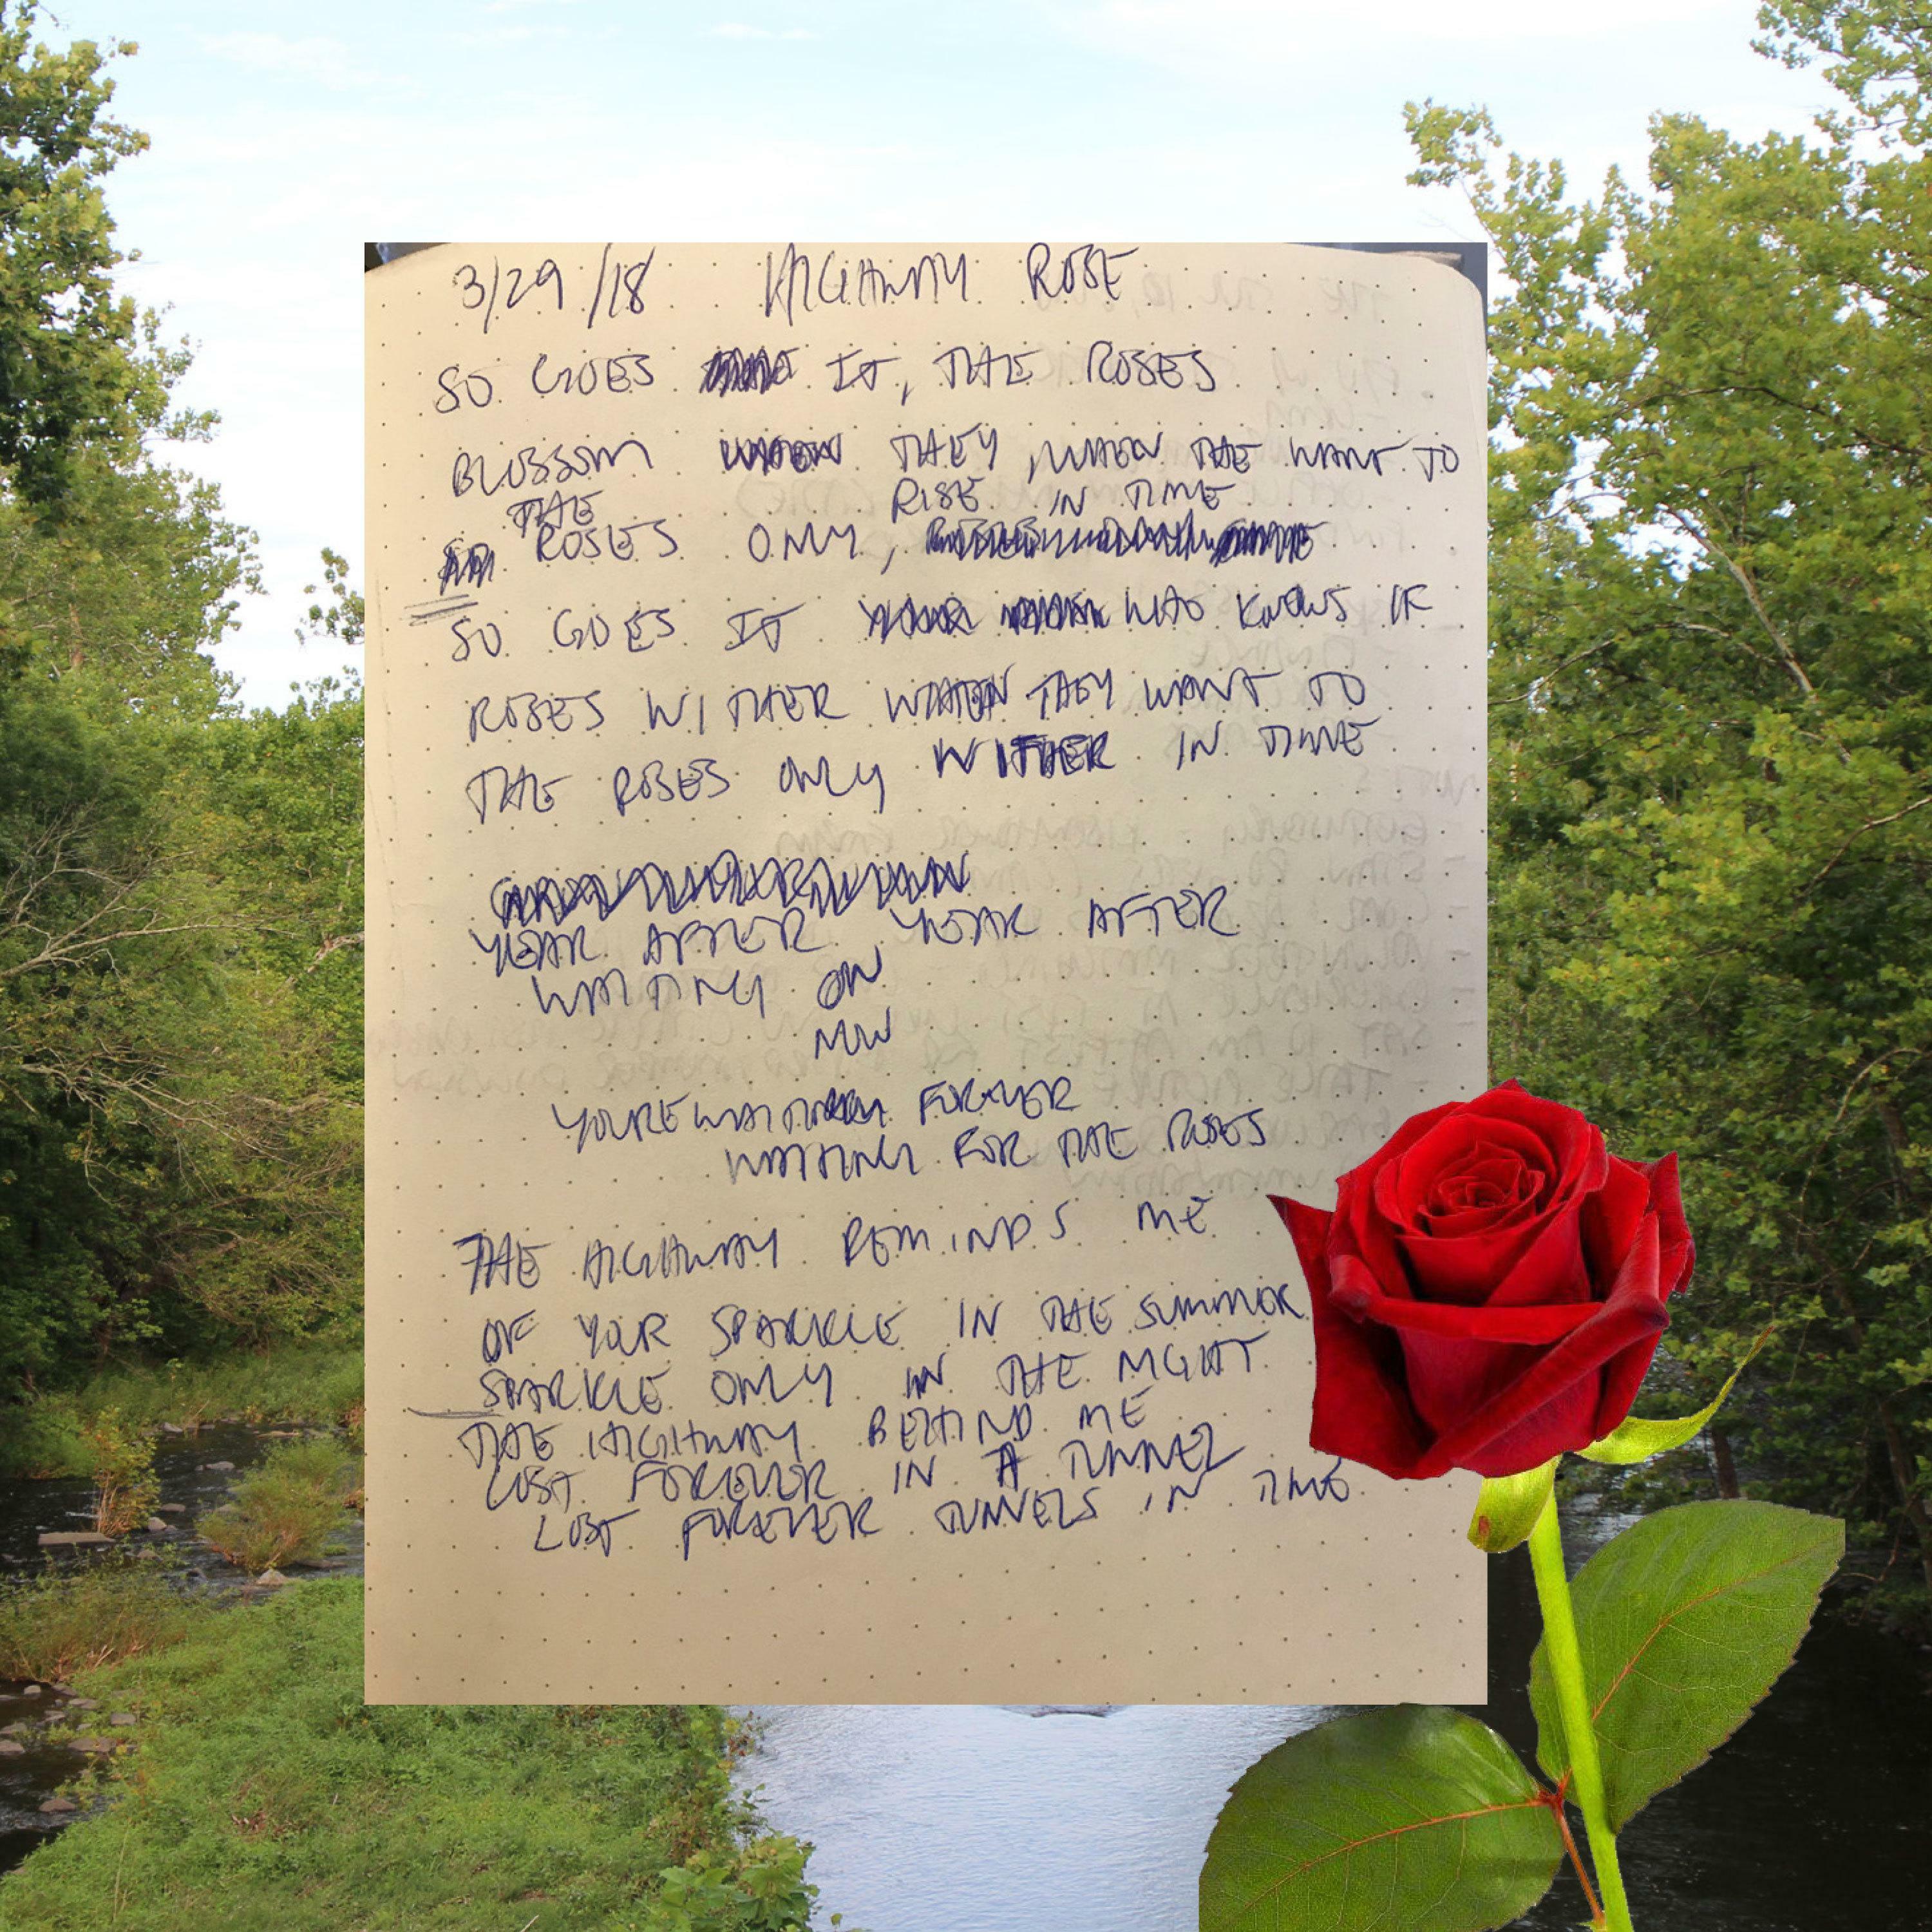 3/29/18 HIGHWAY ROSE
SO GOES IT, THE ROSES
BLOSSOM WHEN THEY, WHEN THE WANT TO
THE RISE IN TIME
ROSES ONLY,
SO GOES IT WHO KNOWS IF
ROSES WITHER WHEN THEY WANT TO
THE ROSES ONLY WITHER IN TIME
YEAR AFTER YEAR AFTER
WAITING ON
YOURE WAITING FOREVER
WAITING FOR THE ROSES
THE HIGHWAY REMINDS ME
OF YOUR SPARKLE IN THE SUMMER
SPARKLE ONLY IN THE NIGHT
THE HIGHWAY BEHIND ME
LOST FOREVER IN A TUNNEL
LOST FOREVER TUNNELS IN TIME